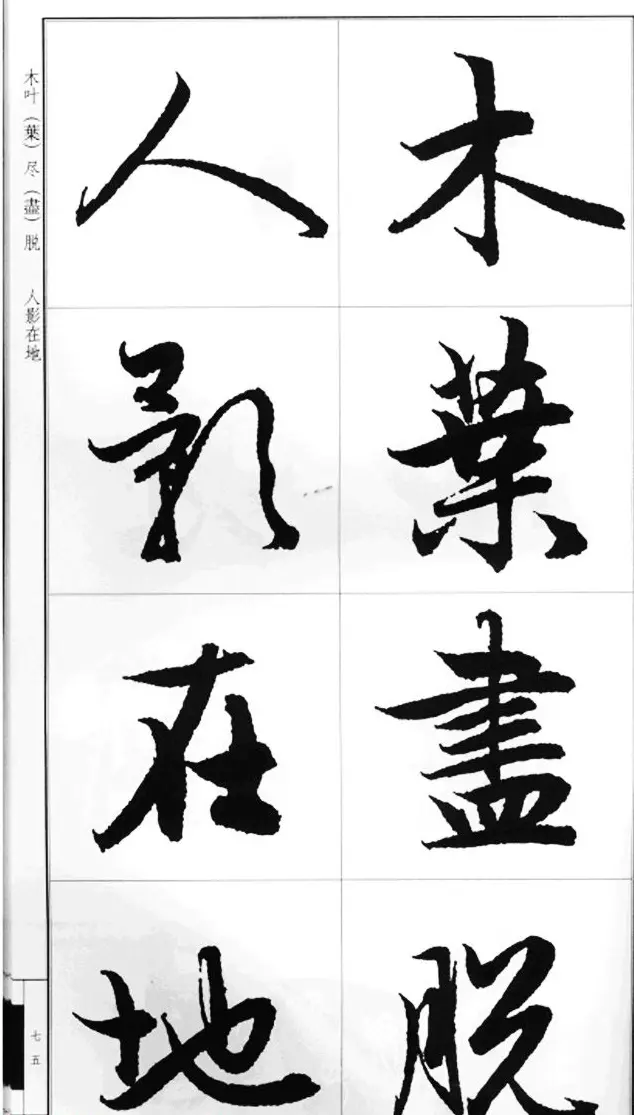 木葉盡脱
人影在地
木叶（葉）尽（盡）脱　人影在地
七五